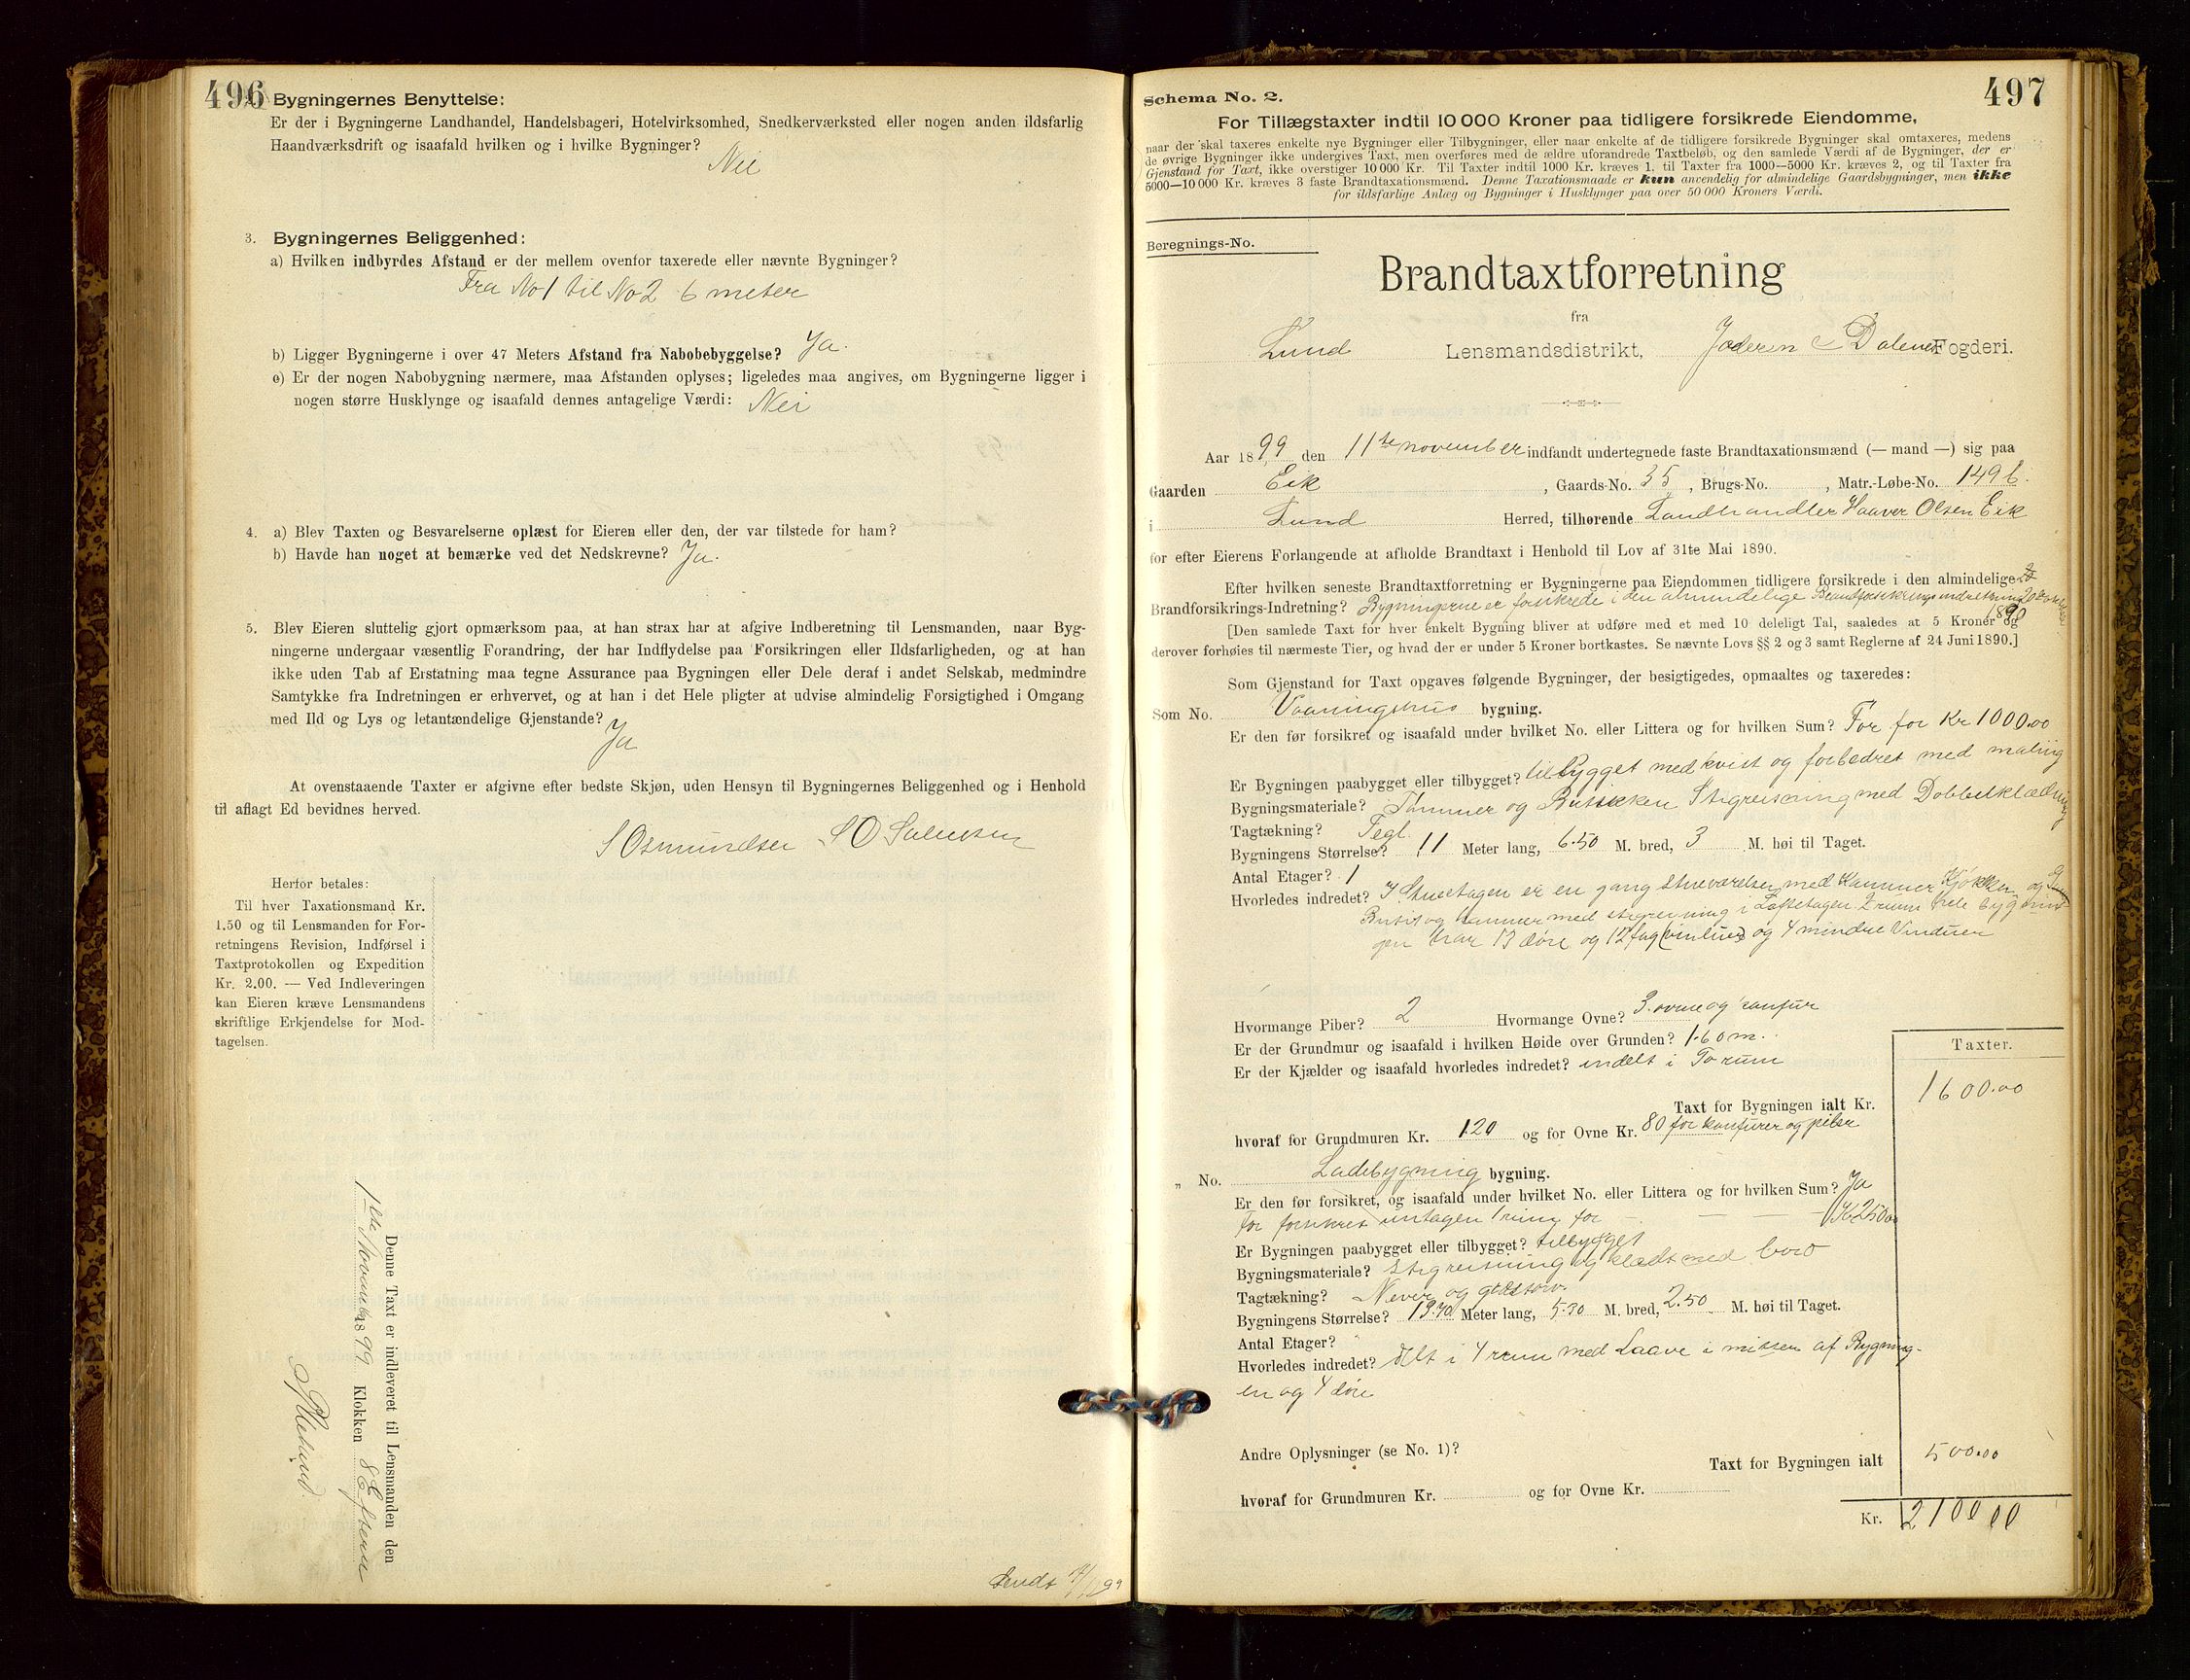 496
Bygningernes Benyttelse:
Er der i Bygningerne Landhandel, Handelsbageri, Hotelvirksomhed, Snedkerværksted eller nogen anden ildsfarlig
Haandværksdrift og isaafald hvilken og i hvilke Bygninger?
Nei
3. Bygningernes Beliggenhed:
a) Hvilken indbyrdes Afstand er der mellem ovenfor taxerede eller nævnte Bygninger?
Fra No 1 til No 2 6 meter
b) Ligger Bygningerne i over 47 Meters Afstand fra Nabobebyggelse? Ja.
c) Er der nogen Nabobygning nærmere, maa Afstanden oplyses; ligeledes maa angives, om Bygningerne ligger i
nogen større Husklynge og isaafald dennes antagelige Værdi: Nei
4. a) Blev Taxten og Besvarelserne oplæst for Eieren eller den, der var tilstede for ham?
b) Havde han noget at bemærke ved det Nedskrevne? Ja.
5. Blev Eieren sluttelig gjort opmærksom paa, at han strax har at afgive Indberetning til Lensmanden, naar Byg-
ningerne undergaar væsentlig Forandring, der har Indflydelse paa Forsikringen eller Ildsfarligheden, og at han
ikke uden Tab af Erstatning maa tegne Assurance paa Bygningen eller Dele deraf i andet Selskab, medmindre
Samtykke fra Indretningen er erhvervet, og at han i det Hele pligter at udvise almindelig Forsigtighed i Omgang
med Ild og Lys og letantændelige Gjenstande?
Ja
At ovenstaaende Taxter er afgivne efter bedste Skjøn, uden Hensyn til Bygningernes Beliggenhed og i Henhold
til aflagt Ed bevidnes herved.
S Osmundsen S O
Herfor betales:
Til hver Taxationsmand Kr.
1.50 og til Lensmanden for For-
retningens Revision, Indførsel i
Taxtprotokollen og Expedition
Kr. 2.00. — Ved Indleveringen
kan Eieren kræve Lensmandens
skriftlige Erkjendelse for Mod-
tagelsen.
Denne Taxt er indleveret til Lensmanden den
11te November 1899 Klokken 8 Efterm
Sendt
497
Schema No. 2.
For Tillægstaxter indtil 10 000 Kroner paa tidligere forsikrede Eiendomme,
naar der skal taxeres enkelte nye Bygninger eller Tilbygninger, eller naar enkelte af de tidligere forsikrede Bygninger skal omtaxeres, medens
de øvrige Bygninger ikke undergives Taxt, men overføres med de ældre uforandrede Taxtbeløb, og den samlede Værdi af de Bygninger, der er
Gjenstand for Taxt, ikke overstiger 10 000 Kr. Til Taxter indtil 1000 Kr. kræves 1, til Taxter fra 1000—5000 Kr. kræves 2, og til Taxter fra
5000—10 000 Kr. kræves 3 faste Brandtaxationsmænd. Denne Taxationsmaade er kun anvendelig for almindelige Gaardsbygninger, men ikke
for ildsfarlige Anlæg og Bygninger i Husklynger paa over 50 000 Kroners Værdi.
Beregnings-No.
Brandtaxtforretning
fra
Lund Lensmandsdistrikt, Jæderen & Dalenes Fogderi.
Aar 1899 den 11te november indfandt undertegnede faste Brandtaxationsmænd (— mand —) sig paa
Gaarden Eik, Gaards-No. 35, Brugs-No. , Matr.-Løbe-No. 149b.
i Lund Herred, tilhørende Landhandler Haaver Olsen Eik
for efter Eierens Forlangende at afholde Brandtaxt i Henhold til Lov af 31te Mai 1890.
Efter hvilken seneste Brandtaxtforretning er Bygningerne paa Eiendommen tidligere forsikrede i den almindelige
Brandforsikrings-Indretning? Bygningerne er forsikrede i den almindelige Brandforsikringsindretning
1890
[Den samlede Taxt for hver enkelt Bygning bliver at udføre med et med 10 deleligt Tal, saaledes at 5 Kroner og
derover forhøies til nærmeste Tier, og hvad der er under 5 Kroner bortkastes. Se nævnte Lovs §§ 2 og 3 samt Reglerne af 24 Juni 1890.]
Som Gjenstand for Taxt opgaves følgende Bygninger, der besigtigedes, opmaaltes og taxeredes:
Som No. Vaaningshus bygning.
Er den før forsikret og isaafald under hvilket No. eller Littera og for hvilken Sum? For for Kr 1000.00
Er Bygningen paabygget eller tilbygget? tilbygget med kvist og forbedret med maling
Bygningsmateriale? Tømmer og Butikken Stigreisning med Dobbelklædning
Tagtækning? Tegl.
Bygningens Størrelse? 11 Meter lang, 6.50 M. bred, 3 M. høi til Taget.
Antal Etager? 1
Hvorledes indredet? I Stueetagen er en gang Stueværelse med Kammer Kjøkken og
Butik og kammer med stigreisning i Loftetagen 2 rum hele bygnin
gen har 13 døre og 12 fag vinduer og 4 mindre Vinduer
Hvormange Piber? 2 Hvormange Ovne? 3 ovne og konfur
Er der Grundmur og isaafald i hvilken Høide over Grunden? 1.60 m.
Er der Kjælder og isaafald hvorledes indredet? indelt i To rum
Taxter.
Taxt for Bygningen ialt Kr. 1600.00
hvoraf for Grundmuren Kr. 120 og for Ovne Kr. 80 for konfurer og piber
„ No. Ladebygning bygning.
Er den før forsikret, og isaafald under hvilket No. eller Littera og for hvilken Sum? Ja
For forsikret untagen 1 rum for — — — — Kr 250.00
Er Bygningen paabygget eller tilbygget? tilbygget
Bygningsmateriale? Stigreisning og klædt med bord
Tagtækning? Never og
Bygningens Størrelse? Meter lang, M. bred, 2.50 M. høi til Taget.
Antal Etager? "
Hvorledes indredet? delt i 4 rum med Laave i mitten af Bygning-
en og 4 døre
Andre Oplysninger (se No. 1)?
Taxt for Bygningen ialt 500.00
hvoraf for Grundmuren Kr. og for Ovne Kr.
Kr. 2100 00